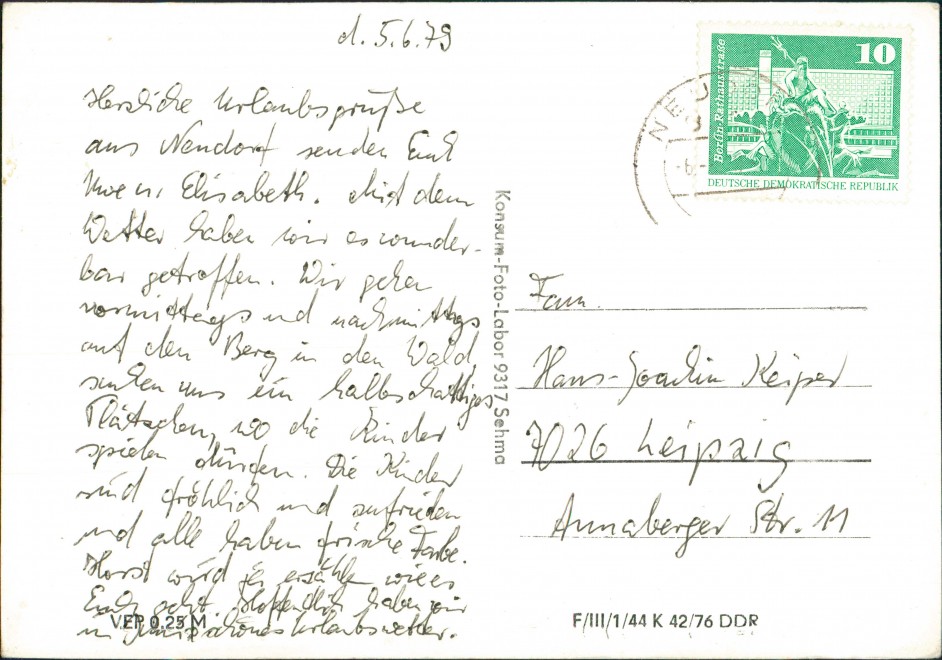 d. 5.6.79
Herzliche Urlaubsgrüße
aus Neudorf senden Euch
Uwe u. Elisabeth. Mit dem
Wetter haben wir es wunder-
bar getroffen. Wir gehen
vormittags und nachmittags
auf den Berg in den Wald,
suchen uns ein halbschattiges
Plätzchen, wo die Kinder
spielen dürfen. Die Kinder
sind fröhlich und zufrieden
und alle haben frische Farbe.
Horst wird ja erzählen wie es
Euch geht. Hoffentlich haben wir
in schönes Urlaubswetter.
VEP 0,25 M
Konsum-Foto-Labor 9317 Sehma
10
Berlin-Rathausstraße
DEUTSCHE DEMOKRATISCHE REPUBLIK
Fam.
Hans-Joachim Keiper
7026 Leipzig
Annaberger Str. 11
F/III/1/44 K 42/76 DDR